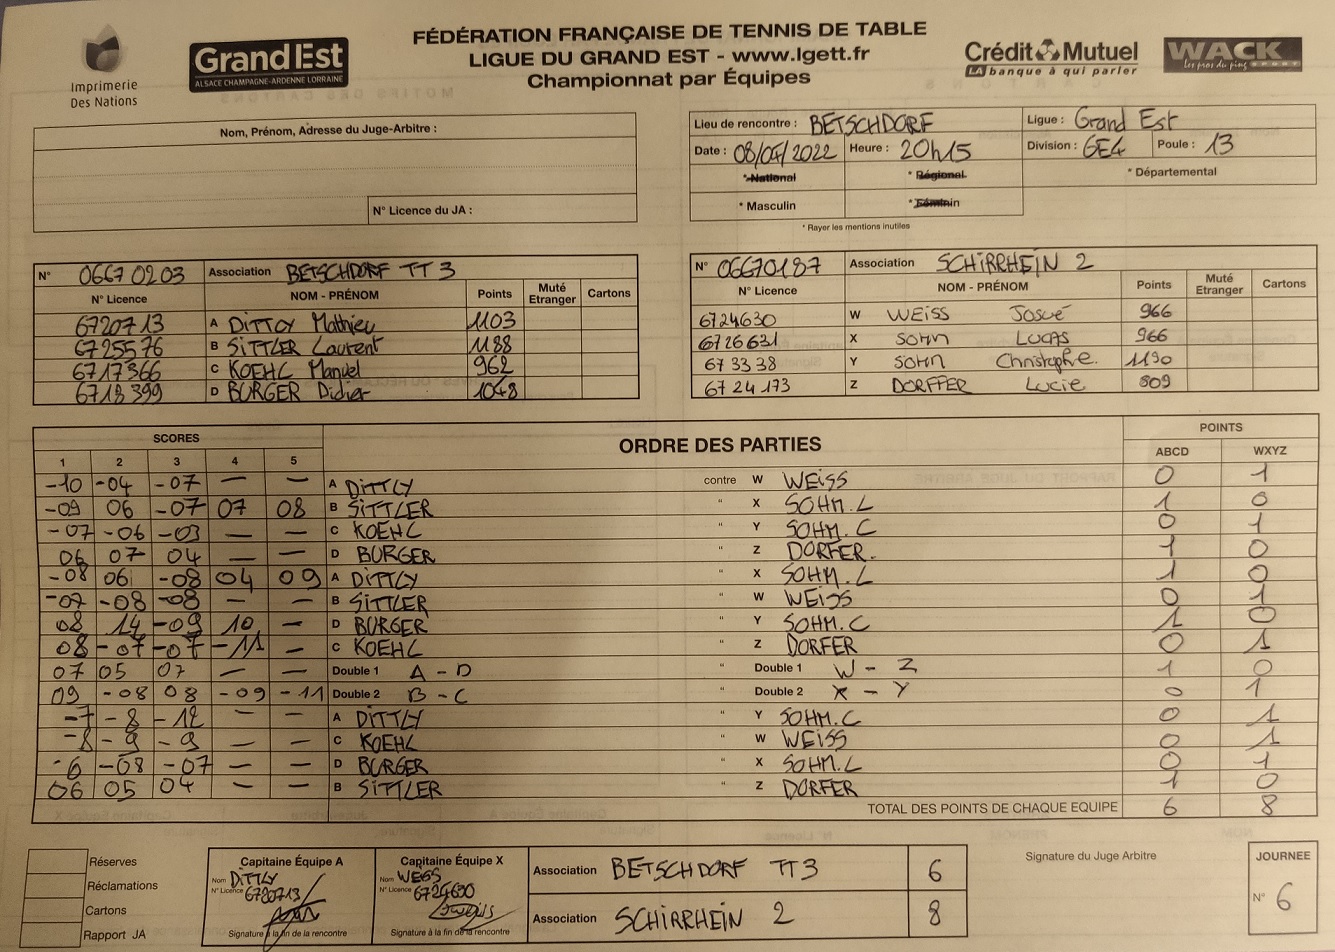 Imprimerie
Des Nations
Grand Est
ALSACE CHAMPAGNE-ARDENNE LORRAINE
FÉDÉRATION FRANÇAISE DE TENNIS DE TABLE
LIGUE DU GRAND EST - www.lgett.fr
Championnat par Équipes
Crédit Mutuel
LA banque à qui parler
WACK
Les pros du ping
Nom, Prénom, Adresse du Juge-Arbitre :
N° Licence du JA :
Lieu de rencontre : BETSCHDORF Ligue : Grand Est
Date : 08/04/2022 Heure : 20h15 Division : GE4 Poule : 13
* National * Régional * Départemental
* Masculin * Féminin
* Rayer les mentions inutiles
N° 06670203 Association BETSCHDORF TT 3
N° Licence NOM - PRÉNOM Points Muté Etranger Cartons
6720713 A DITTLY Mathieu 1103
6725576 B SITTLER Laurent 1188
6717366 C KOEHL Manuel 962
6718399 D BURGER Didier 1048
N° 06670187 Association SCHIRRHEIN 2
N° Licence NOM - PRÉNOM Points Muté Etranger Cartons
6724630 W WEISS Josué 966
6726631 X SOHM LUCAS 966
673338 Y SOHM Christophe. 1190
6724173 Z DORFFER Lucie 809
SCORES ORDRE DES PARTIES POINTS
1 2 3 4 5 ABCD WXYZ
-10 -04 -07 — — A DITTLY contre W WEISS 0 1
-09 06 -07 07 08 B SITTLER " X SOHM.L 1 0
-07 -06 -03 — — C KOEHL " Y SOHM.C 0 1
06 07 04 — — D BURGER " Z DORFER. 1 0
-08 06 -08 04 09 A DITTLY " X SOHM.L 1 0
-07 -08 -08 — — B SITTLER " W WEISS 0 1
08 14 -09 10 — D BURGER " Y SOHM.C 1 0
08 -07 -07 -11 — C KOEHL " Z DORFER 0 1
07 05 07 — — Double 1 A - D " Double 1 W - Z 1 0
09 -08 08 -09 -11 Double 2 B - C " Double 2 X - Y 0 1
-7 -8 -12 — — A DITTLY " Y SOHM.C 0 1
-8 -9 -9 — — C KOEHL " W WEISS 0 1
-6 -08 -07 — — D BURGER " X SOHM.L 0 1
06 05 04 — — B SITTLER " Z DORFER 1 0
TOTAL DES POINTS DE CHAQUE EQUIPE 6 8
Réserves
Réclamations
Cartons
Rapport JA
Capitaine Équipe A
Nom DITTLY
N° Licence 6720713
Signature à la fin de la rencontre
Capitaine Équipe X
Nom WEISS
N° Licence 6724630
Signature à la fin de la rencontre
Association BETSCHDORF TT3 6
Association SCHIRRHEIN 2 8
Signature du Juge Arbitre
JOURNEE
N° 6